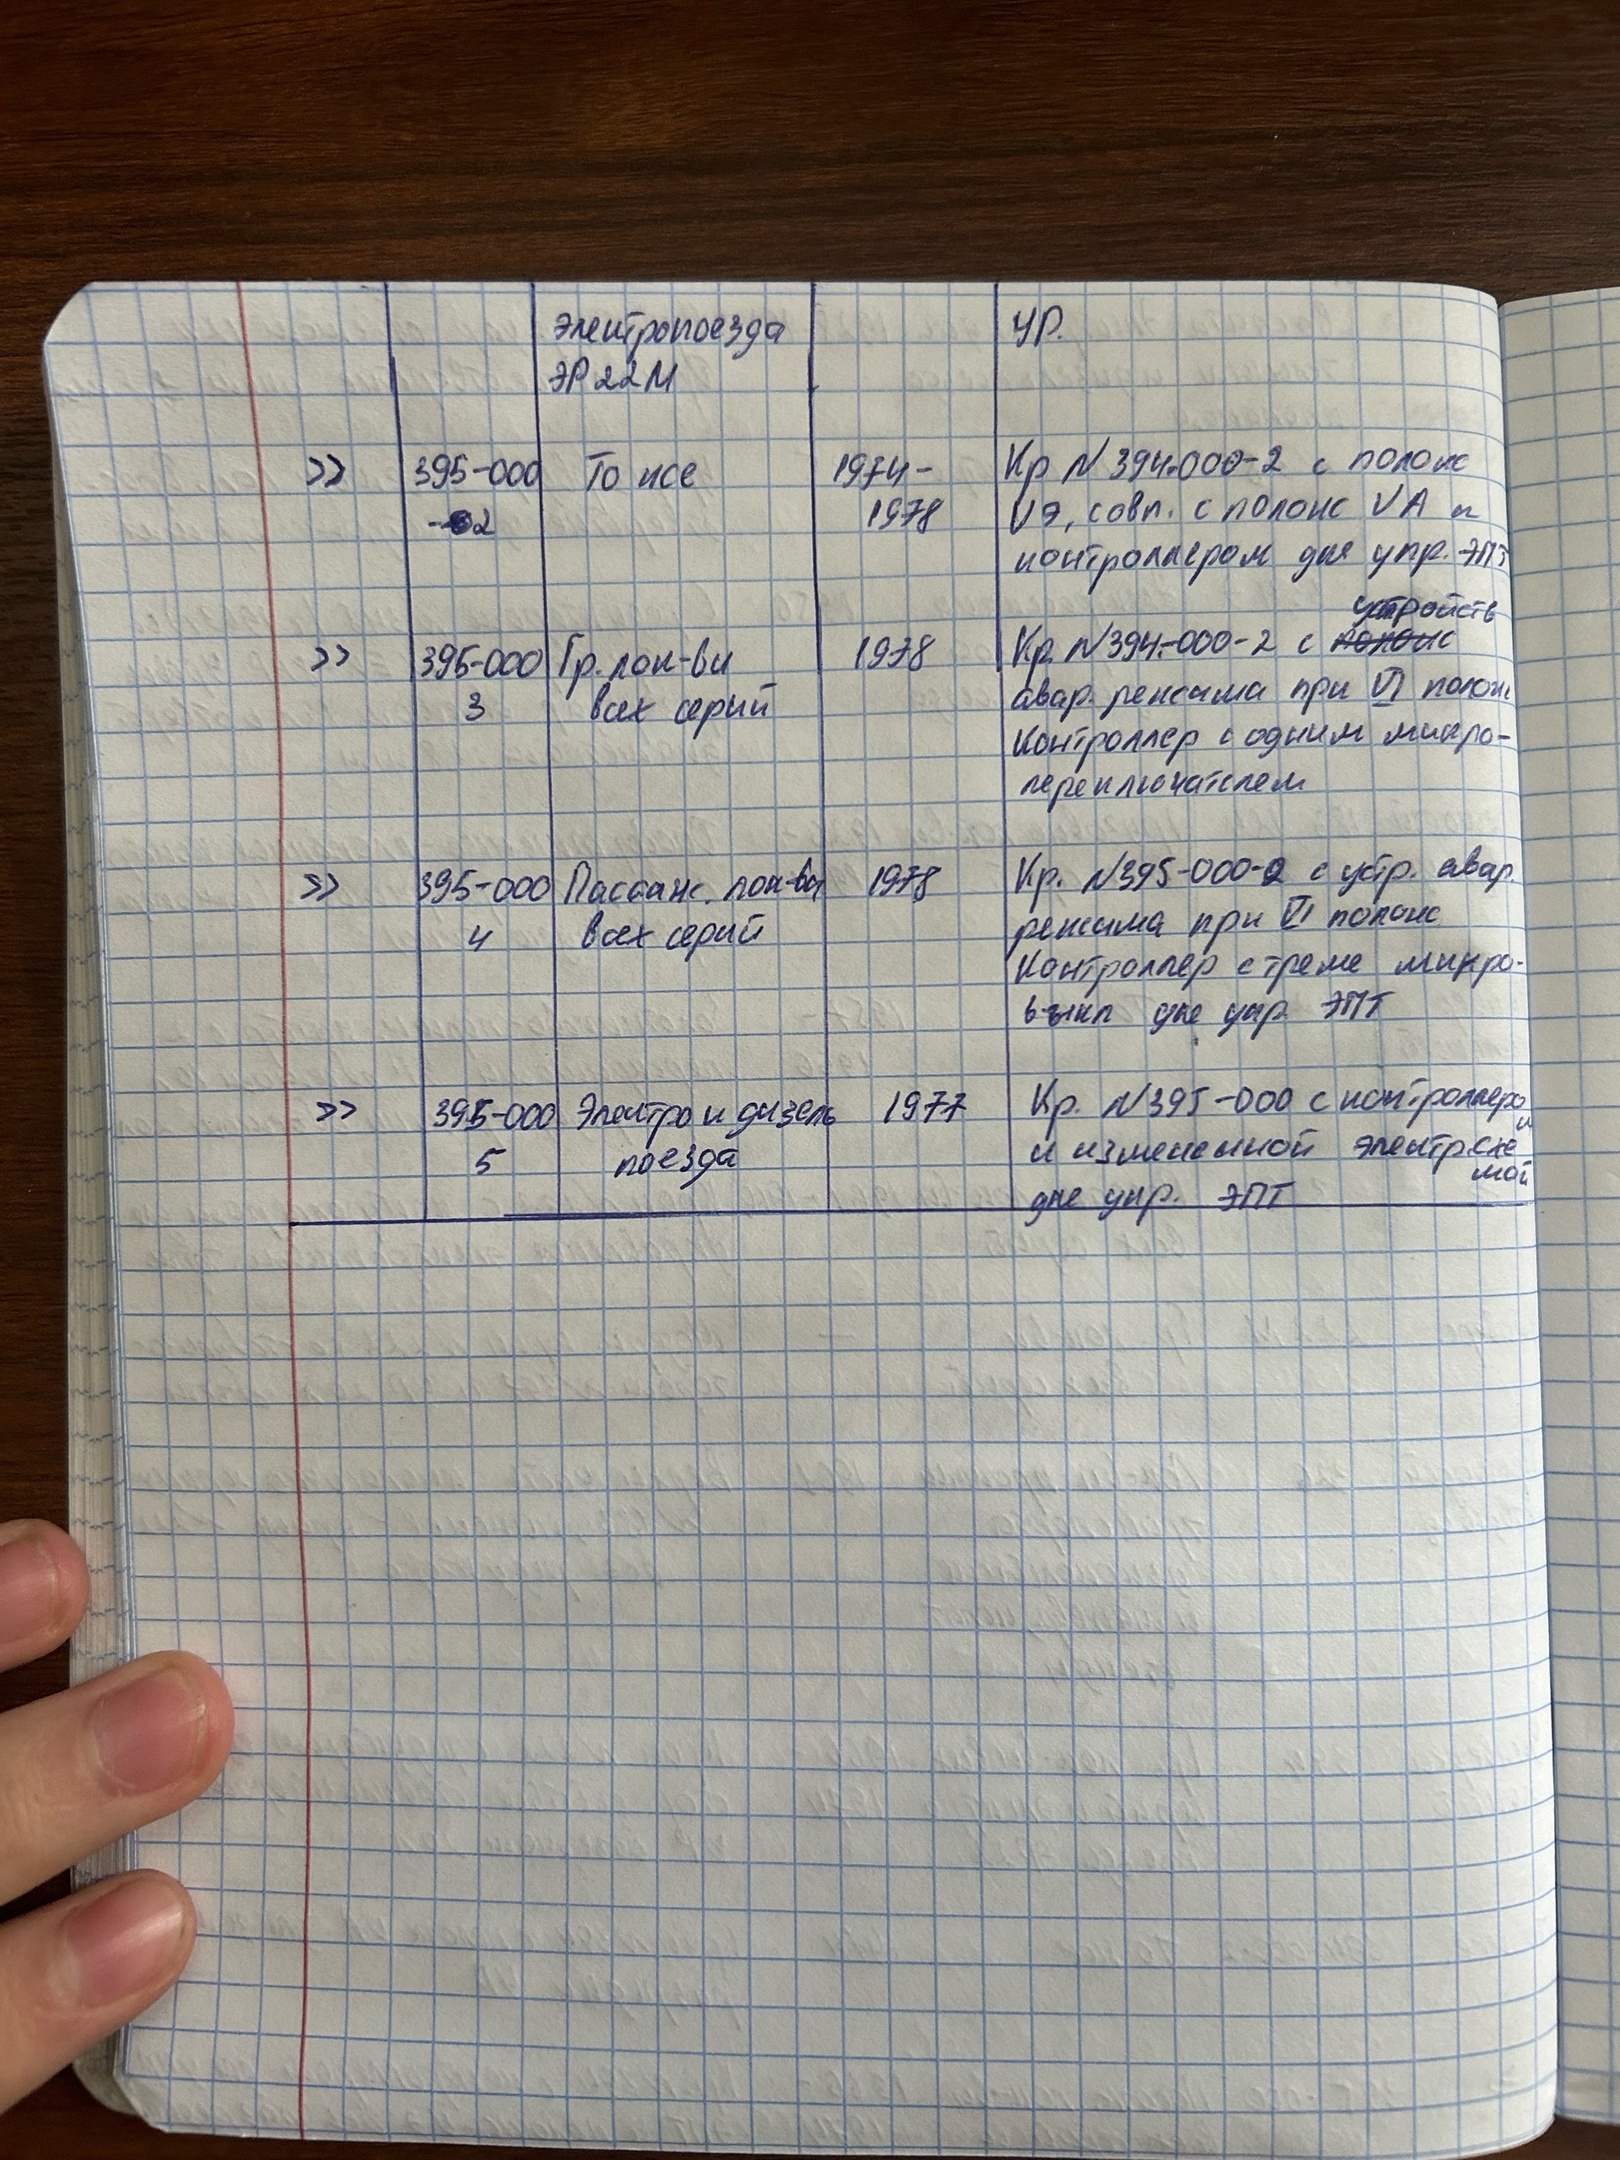 электропоезда УР.
ЭР22М
>> 395-000 То же 1974- Кр N394.000-2 с полож
-2 1978 VЭ, совп. с полож VA и
контроллером для упр. ЭПТ
устройств
>> 395-000 Гр. лок-вы 1978 Кр. N394-000-2 с полож
3 всех серий авар. режима при VI полож
Контроллер с одним микро-
переключателем
>> 395-000 Пассаж. лок-вы 1978 Кр. N395-000-2 с устр. авар.
4 всех серий режима при VI полож
Контроллер с тремя микро-
выкл для упр. ЭПТ
>> 395-000 Электро и дизель 1977 Кр. N395-000 с контроллеро
м
5 поезда и измененной электрсхе
мой
для упр. ЭПТ